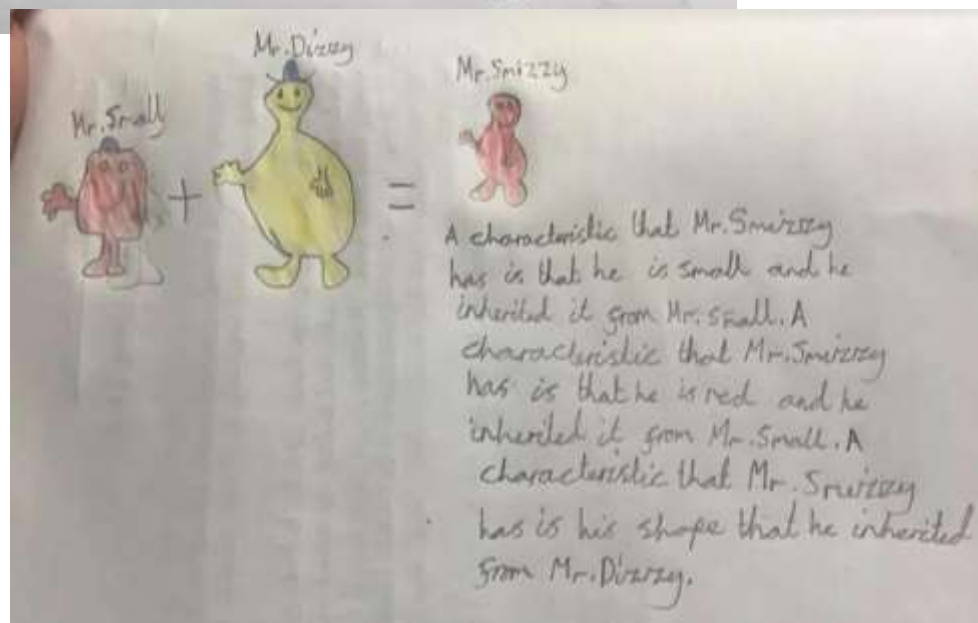 Mr. Small
Mr. Dizzy
Mr. Smizzy
+
=
A characteristic that Mr. Smizzy
has is that he is small and he
inherited it from Mr. small. A
characteristic that Mr. Smizzy
has is that he is red and he
inherited it from Mr. Small. A
characteristic that Mr. Smizzy
has is his shape that he inherited
from Mr. Dizzy.